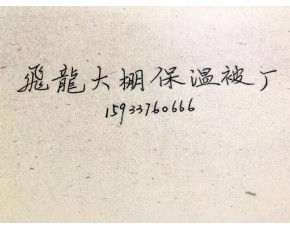 飛龍大棚保温被厂
15933760666